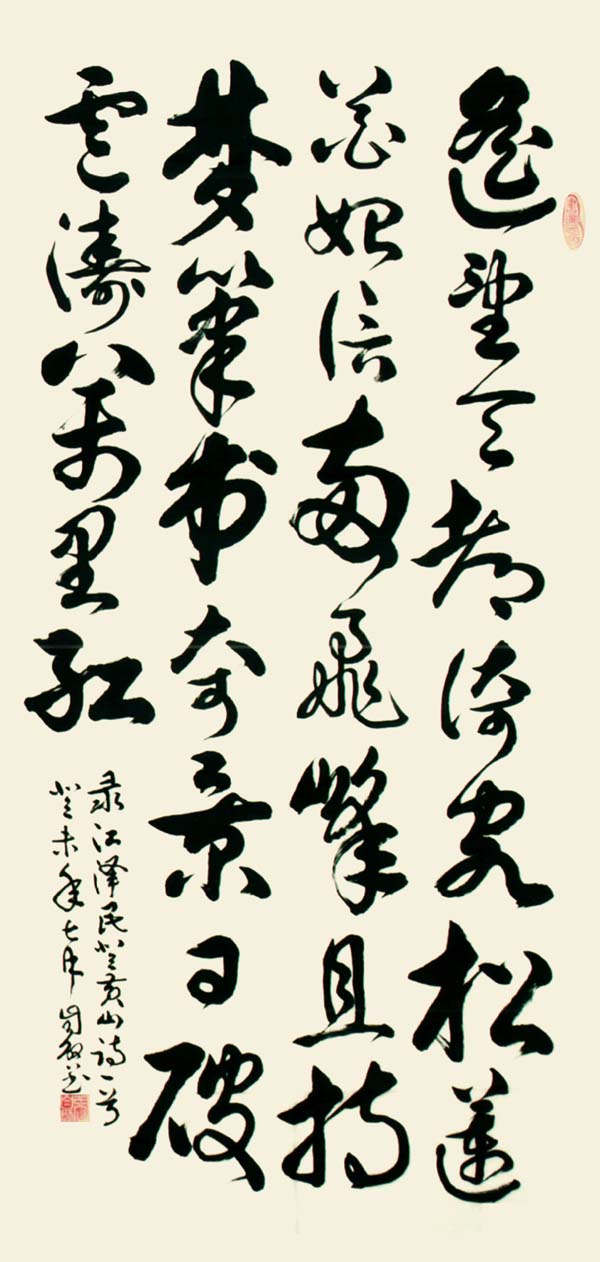 遥望天都倚客松莲
花始信两飞峰且持
梦笔书奇景日破
云涛万里红
录江泽民登黄山诗一首
癸未年七月